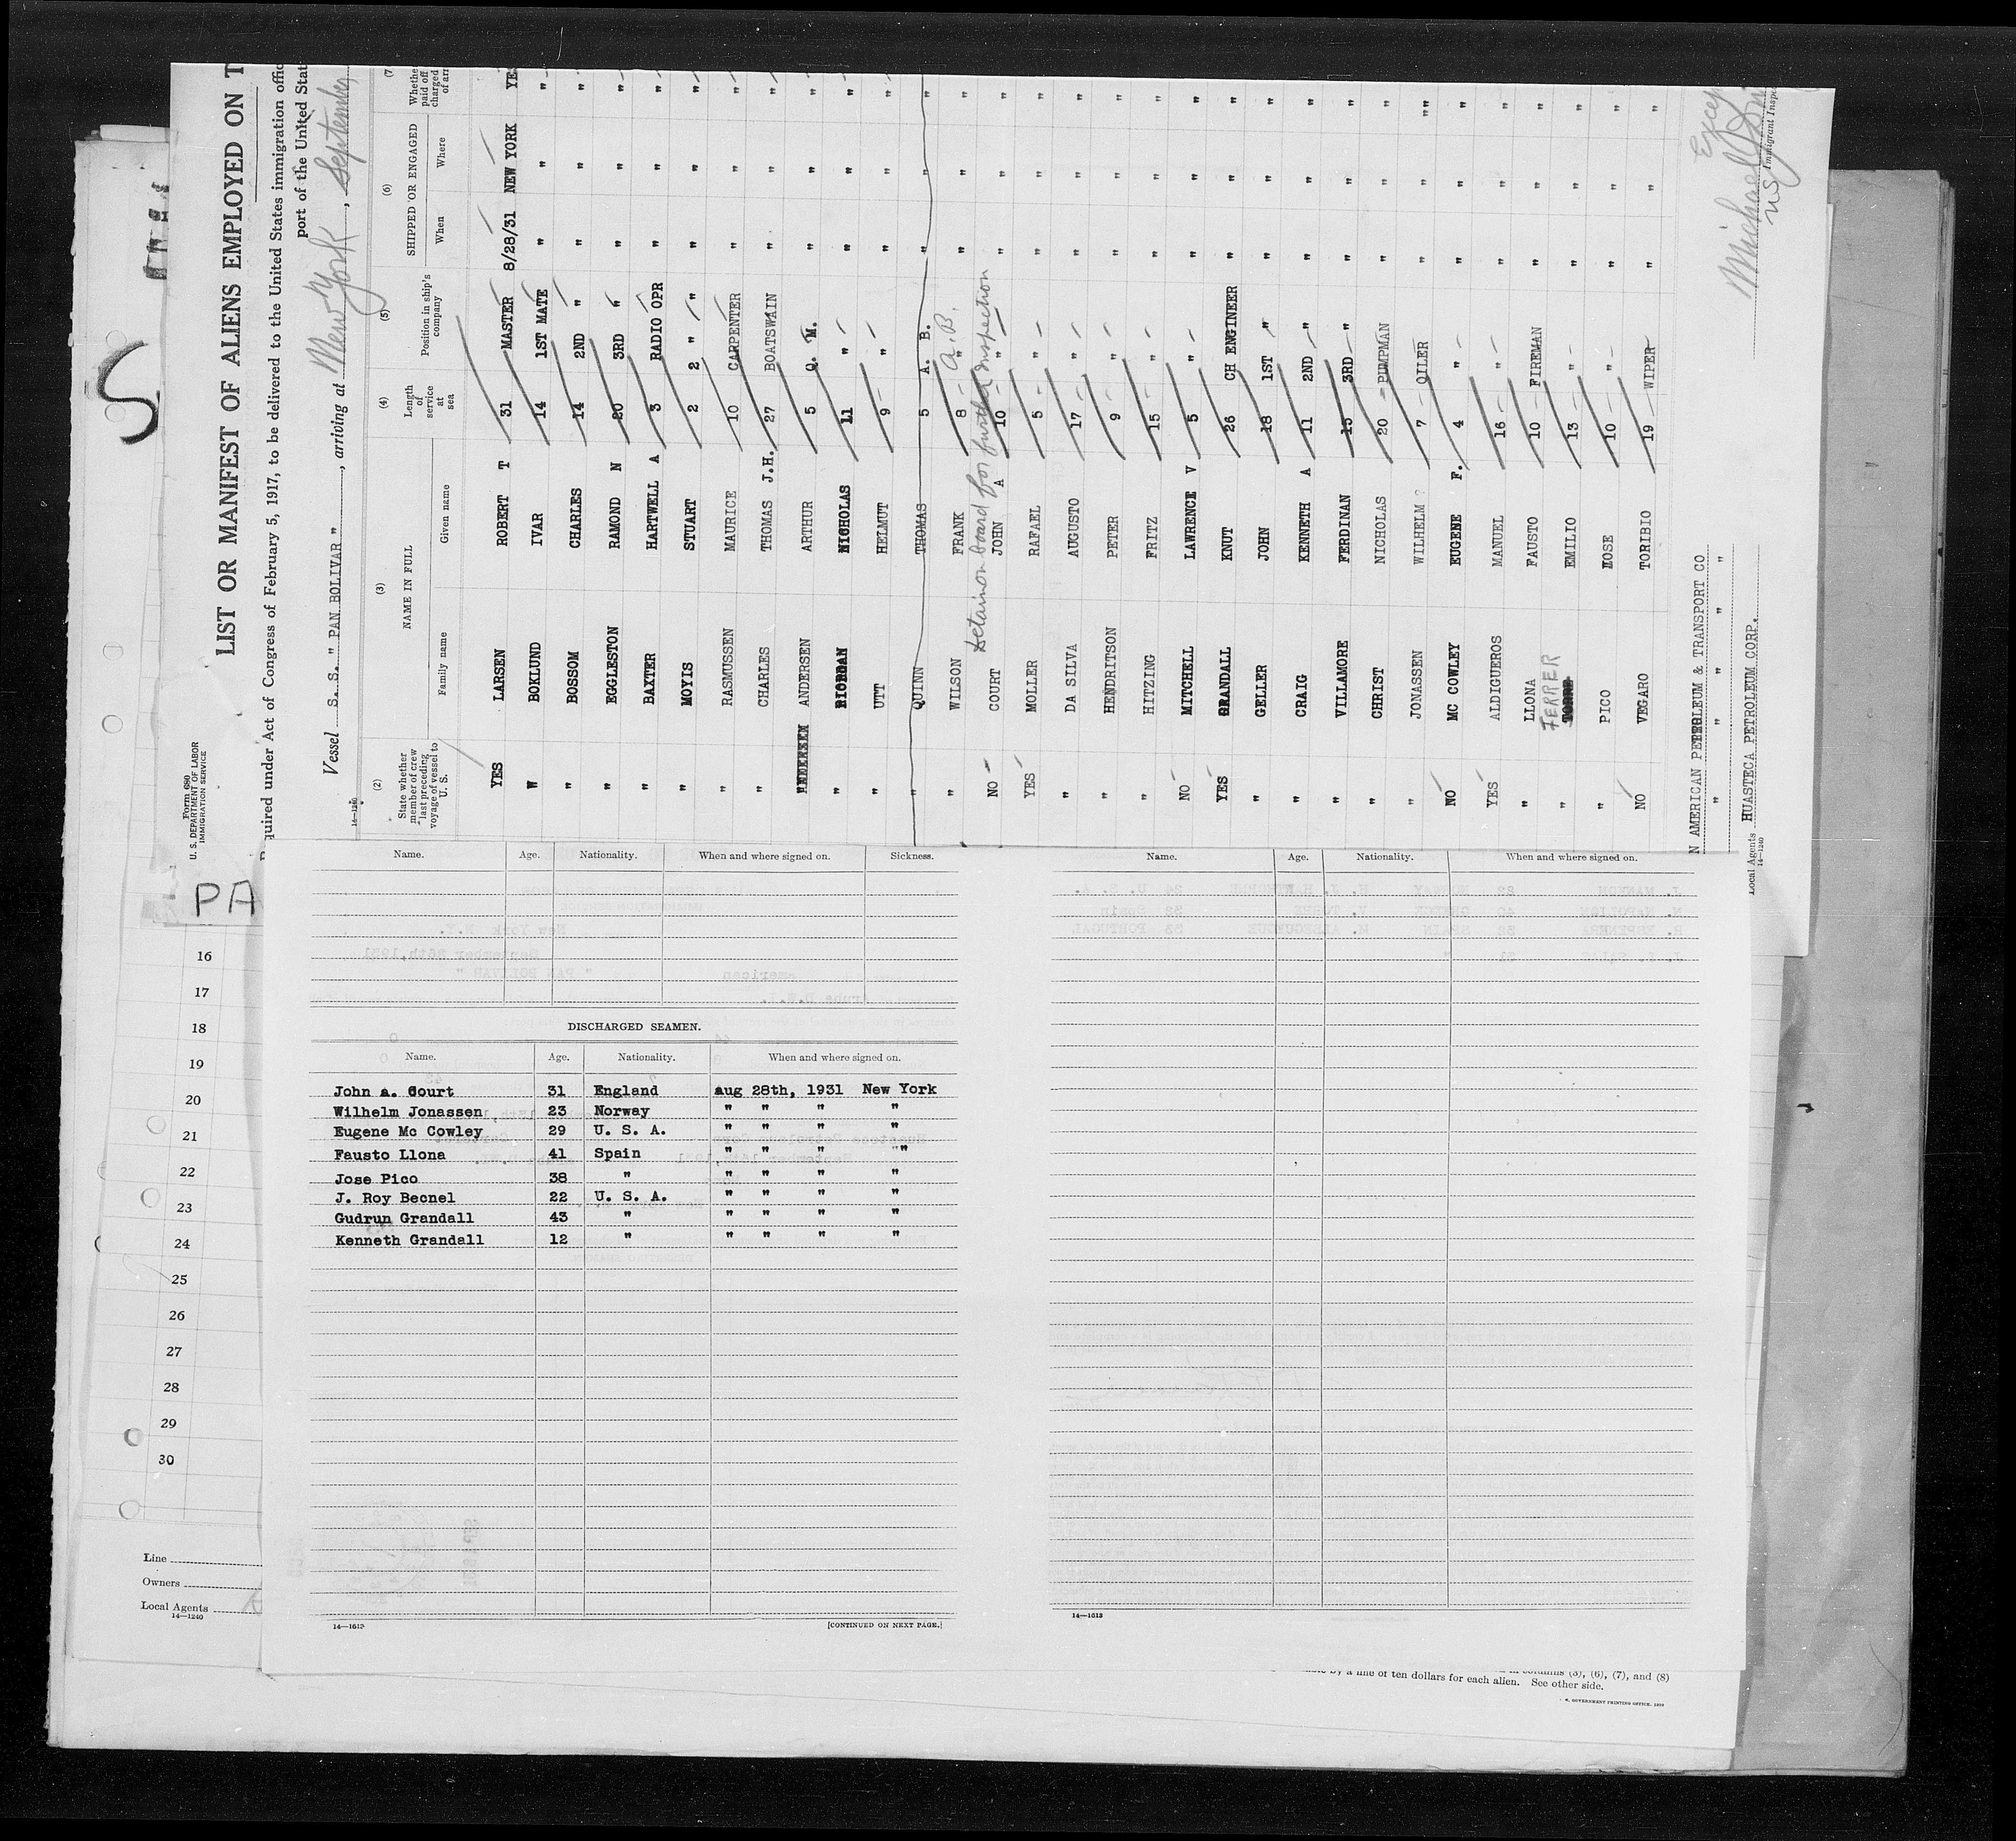 Form 680
U. S. DEPARTMENT OF LABOR
IMMIGRATION SERVICE
LIST OR MANIFEST OF ALIENS EMPLOYED ON T
quired under Act of Congress of February 5, 1917, to be delivered to the United States immigration offic
port of the United Stat
Vessel S. S. " PAN BOLIVAR " , arriving at New York , September
14—1240
(2) (3) (4) (5) (6) (7)
State whether member of crew last preceding voyage of vessel to U. S. NAME IN FULL Length of service at sea Position in ship's company SHIPPED OR ENGAGED Whethe paid off charged of arr
Family name Given name When Where
YES LARSEN ROBERT T 31 MASTER 8/28/31 NEW YORK YE
W BOKLUND IVAR 14 1ST MATE " " "
" BOSSOM CHARLES 14 2ND " " " "
" EGGLESTON RAMOND N 20 3RD " " " "
" BAXTER HARTWELL A 3 RADIO OPR " " "
" MOYIS STUART 2 2 " " " " "
" RASMUSSEN MAURICE 10 CARPENTER " " "
" CHARLES THOMAS J.H. 27 BOATSWAIN " " "
ANDERSEN ARTHUR 5 Q. M. " " "
" RIORDAN NICHOLAS 11 " " " "
" UTT HELMUT 9 " " " "
" QUINN THOMAS 5 A. B. " " "
" WILSON FRANK 8 " A.B. " " "
Detain on board for further inspection
NO COURT JOHN A 10 " " " "
YES MOLLER RAFAEL 5 " " " "
" DA SILVA AUGUSTO 17 " " " "
" HENDRITSON PETER 9 " " " "
" HITZING FRITZ 15 " " " "
NO MITCHELL LAWRENCE V 5 " " " "
YES GRANDALL KNUT 26 CH ENGINEER " " "
" GELLER JOHN 18 1ST " " " "
" CRAIG KENNETH A 11 2ND " " " "
" VILLAMORE FERDINAN 15 3RD " " " "
" CHRIST NICHOLAS 20 PUMPMAN " " "
" JONASSEN WILHELM ? 7 OILER " " ""
NO MC COWLEY EUGENE F. 4 " " " "
YES ALDIGUEROS MANUEL 16 " " " "
" LLONA FAUSTO 10 FIREMAN " " "
" FERRER TORRE EMILIO 13 " " " "
" PICO JOSE 10 " " " "
NO VEGARO TORIBIO 19 WIPER " " "
N AMERICAN PETROLEUM & TRANSPORT CO
" " " " "
Local Agents HUASTECA PETROLEUM CORP.
14—1240
Excep
Immigrant Inspe
PA
16
17
18
19
20
21
22
23
24
25
26
27
28
29
30
Line
Owners
Local Agents
14—1240
Name. Age. Nationality. When and where signed on. Sickness.
DISCHARGED SEAMEN.
Name. Age. Nationality. When and where signed on.
John a. Court 31 England aug 28th, 1931 New York
Wilhelm Jonassen 23 Norway " " " "
Eugene Mc Cowley 29 U. S. A. " " " "
Fausto Llona 41 Spain " " " "
Jose Pico 38 " " " " "
J. Roy Becnel 22 U. S. A. " " " "
Gudrun Grandall 43 " " " " "
Kenneth Grandall 12 " " " " "
14—1613
[CONTINUED ON NEXT PAGE.]
Name. Age. Nationality. When and where signed on.
14—1613
in columns (5), (6), (7), and (8)
by a fine of ten dollars for each alien. See other side.
GOVERNMENT PRINTING OFFICE